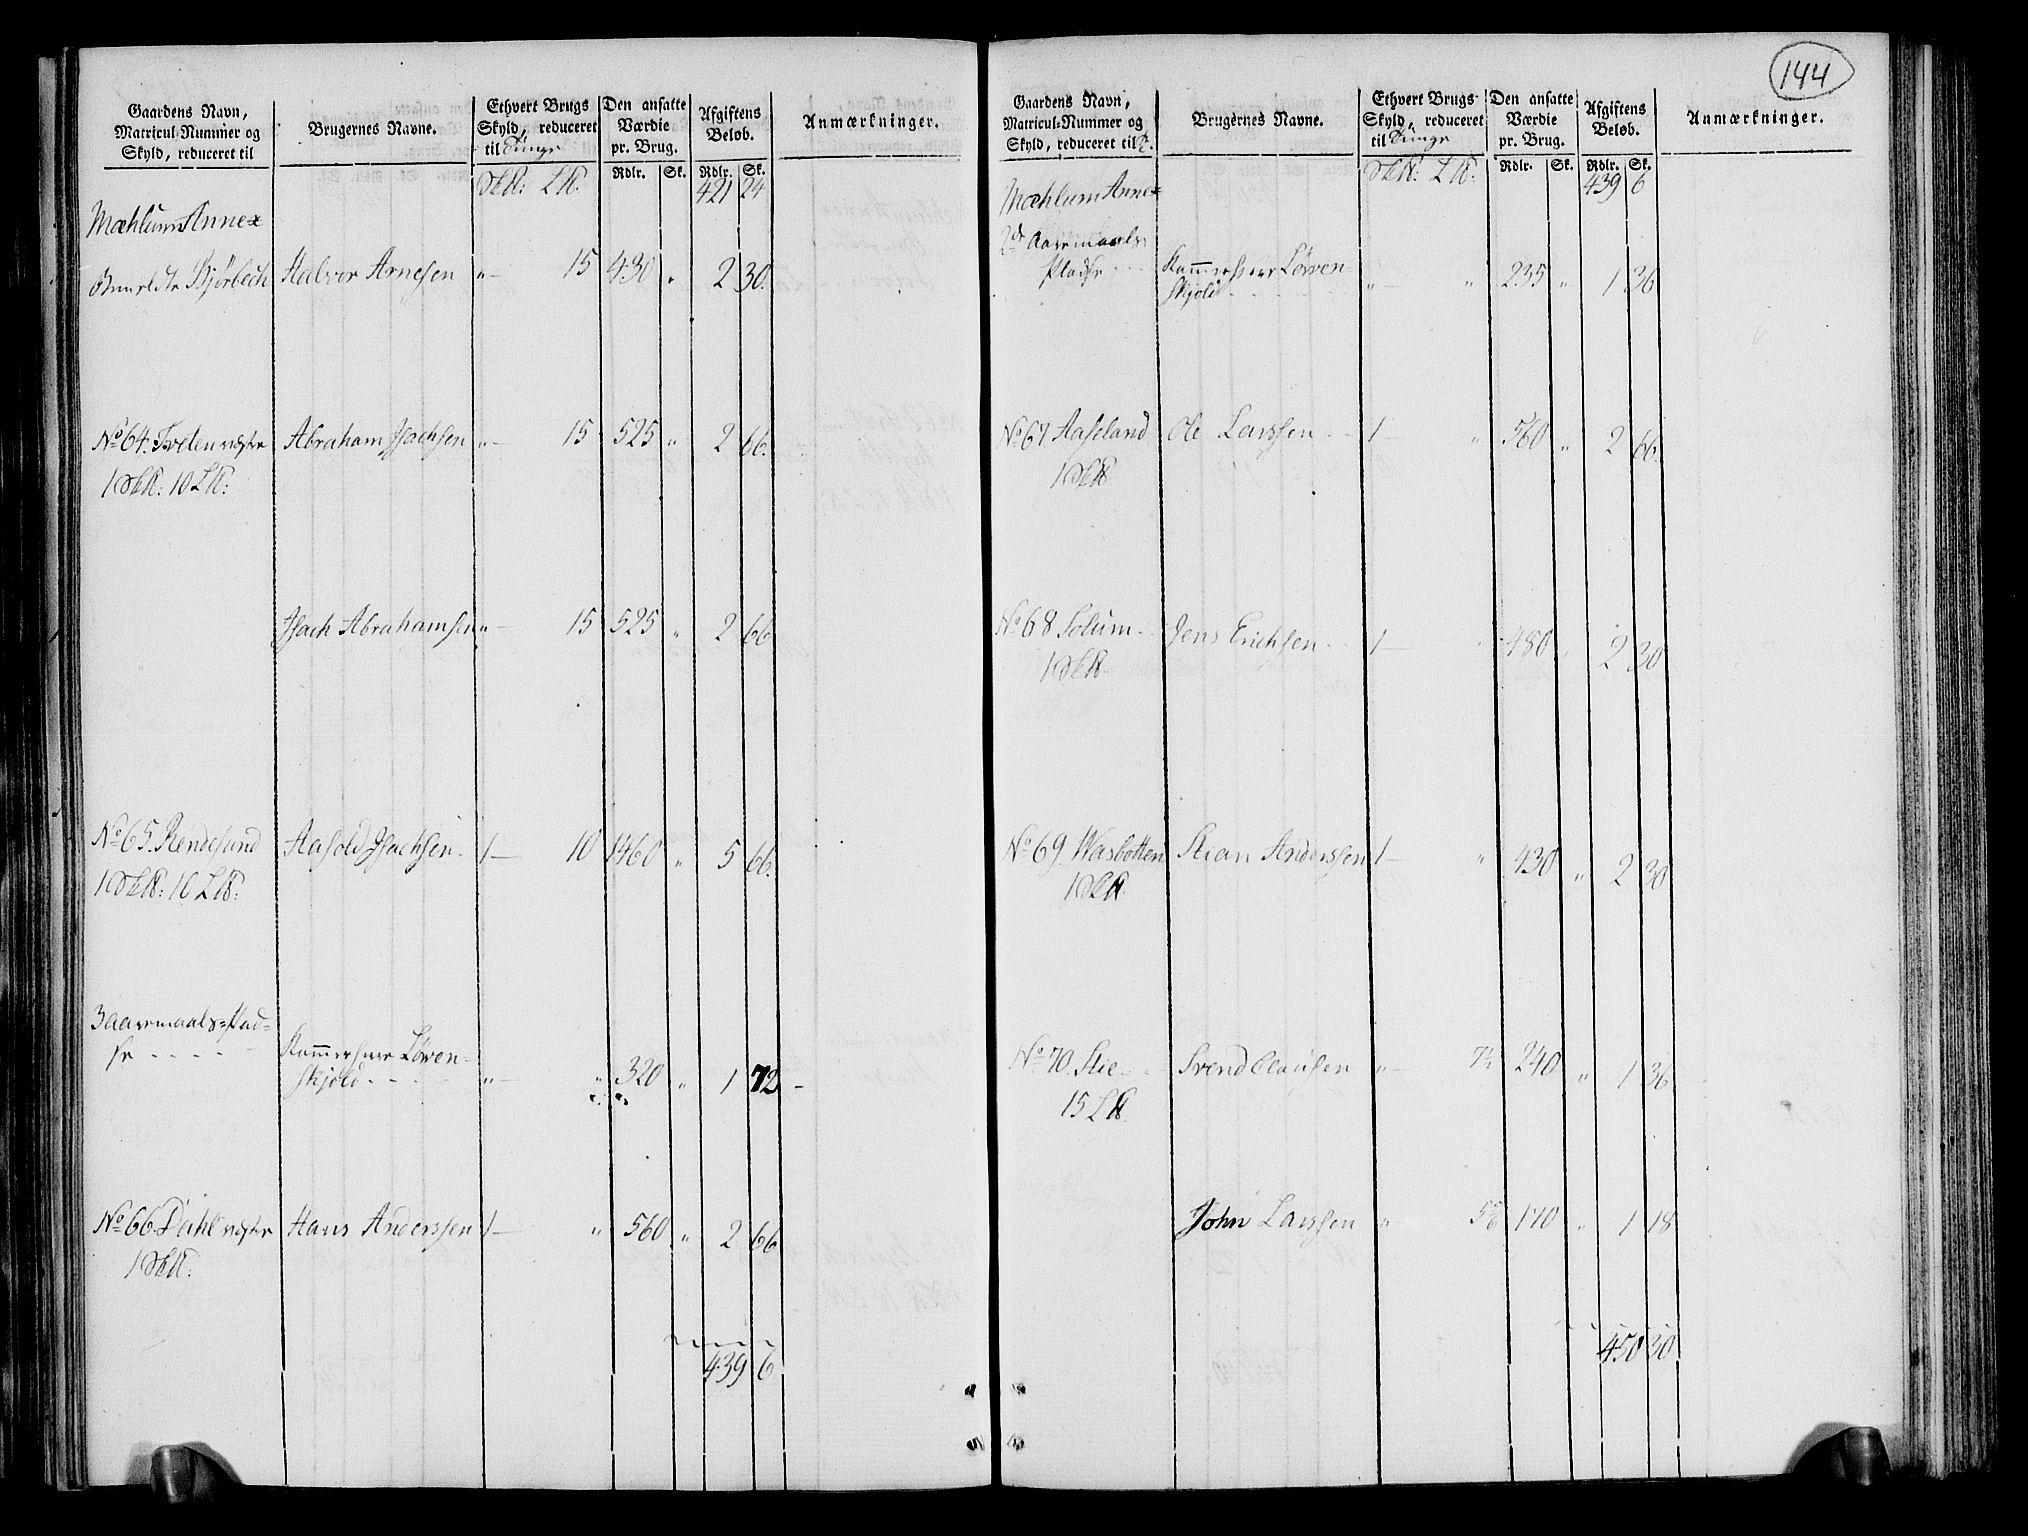 144
Gaardens Navn, Matricul-Nummer og Skyld, reduceret til
Brugernes Navne.
Ethvert Brugs Skyld, reduceret til Tunge
Den ansatte Værdie pr. Brug.
Afgiftens Beløb.
Anmærkninger.
Rdlr. Sk. Rdlr. Sk.
421 24
Mæhlum Annex
Bjørbech Halvor Arnesen „ — 15 430 „ 2 30.
No 64. Tveten vestre Abraham Jsachsen „ — 15 525 „ 2 66.
Jsach Abrahamsen „ — 15 525 „ 2 66
No 65. Rendesund Aasold Jsachsen 1 — 10 1460 „ 5 66.
3 Aaremaals-Plad-
se - - - - - Kammerherr Löwen-
skjold - - - - „ — „ 320 „ 1 72
No 66. Dahl vestre Hans Anderssen 1 — „ 560 „ 2 66
439 6
Gaardens Navn, Matricul-Nummer og Skyld, reduceret til
Brugernes Navne.
Ethvert Brugs Skyld, reduceret til Tunge
Den ansatte Værdie pr. Brug.
Afgiftens Beløb.
Anmærkninger.
Rdlr. Sk. Rdlr. Sk.
439 6
Mæhlum Annex
2de Aaremaals-
Pladse - - - Kammerherr Löwen-
skjold - - - - „ — „ 235 „ 1 36
No 67 Aaseland Ole Larssen 1 — „ 560 „ 2 66.
No 68 Solum Jens Erichsen 1 — „ 480 „ 2 30
No 69. Wasbotten Stian Anderssen 1 — „ 430 „ 2 30
No 70. Stie Svend Clausen „ — 7½ 240 „ 1 36
John Larssen „ — 170 „ 1 18
450 30